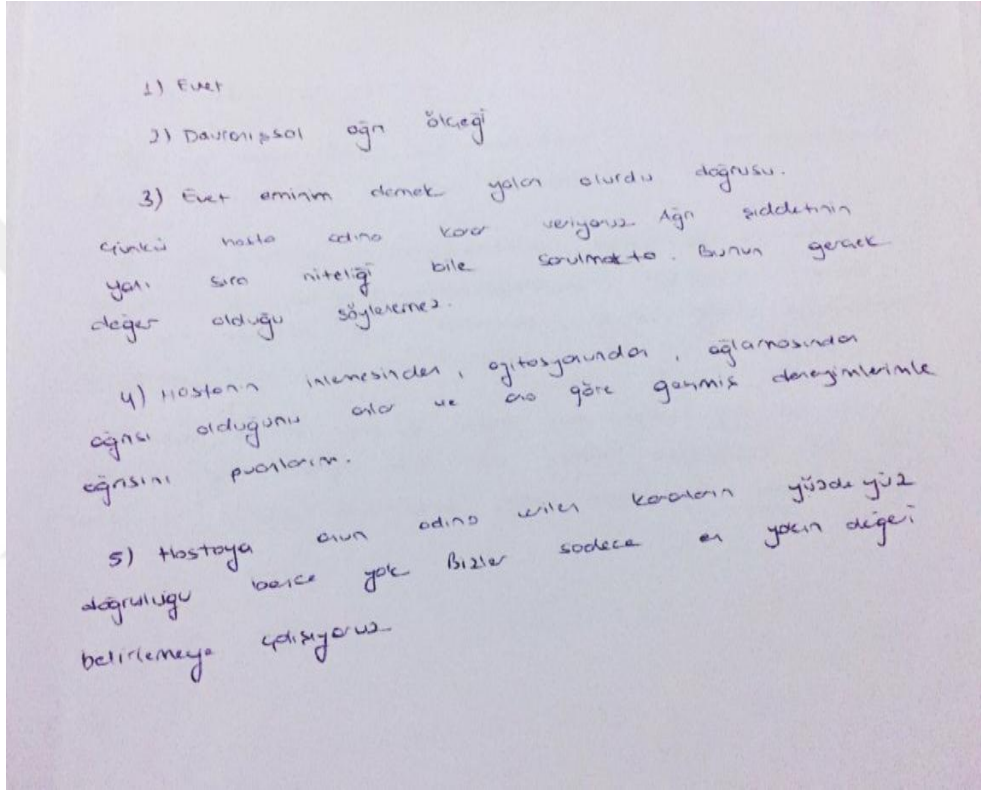 1) Evet
2) Davranışsal ağrı ölçeği
3) Evet eminim demek yalan olurdu doğrusu.
Çünkü hasta adına karar veriyoruz Ağrı şiddetinin
yanı sıra niteliği bile sorulmakta. Bunun gerçek
değer olduğu söylenemez.
4) Hastanın inlemesinden, ajitasyonundan, ağlamasından
ağrısı olduğunu anlar ve ona göre geçmiş deneyimlerimle
ağrısını puanlarım.
5) Hastaya onun adına verilen kararların yüzde yüz
doğruluğu bence yok Bizler sadece en yakın değeri
belirlemeye çalışıyoruz